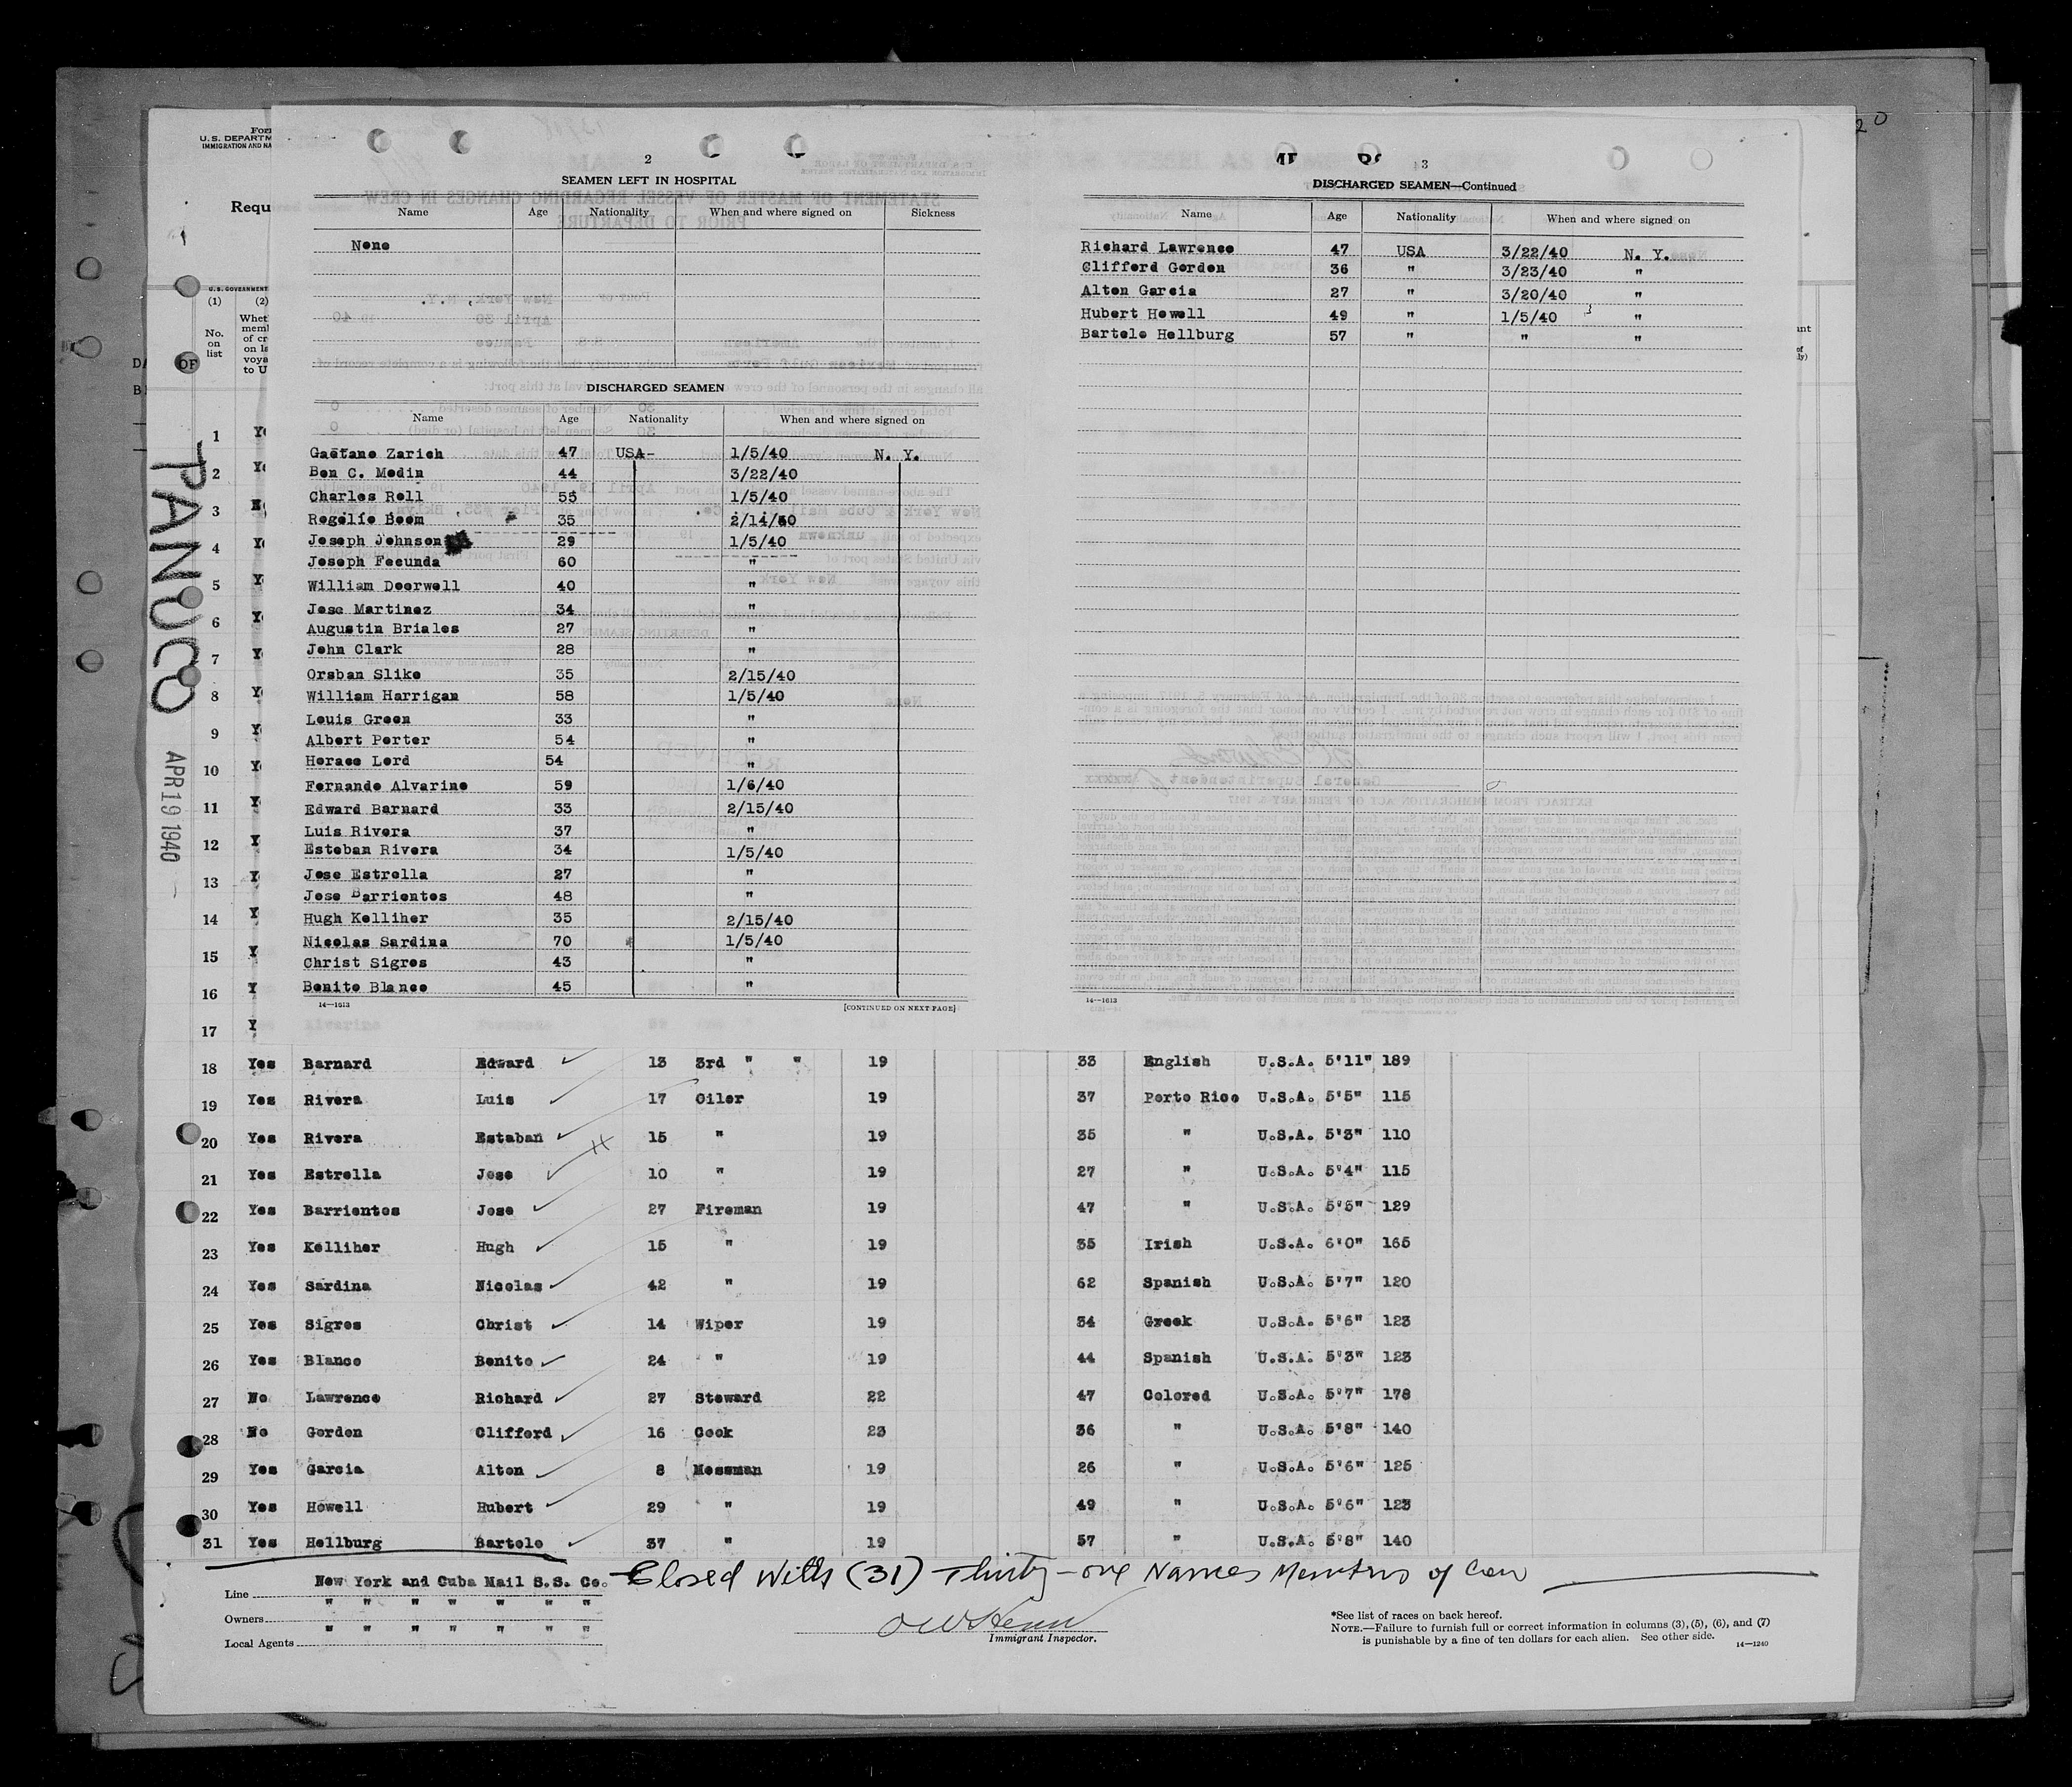 Form
U.S. DEPARTM
IMMIGRATION AND NA
Requ
U.S. GOVERNMENT
(1) (2)
No. on list
Whet
memb
of cr
on la
voya
to U
OF
PANUCO
APR 19 1940
2
SEAMEN LEFT IN HOSPITAL
Name Age Nationality When and where signed on Sickness
None
DISCHARGED SEAMEN
Name Age Nationality When and where signed on
Gaetano Zarich 47 USA- 1/5/40 N. Y.
Ben C. Medin 44 3/22/40
Charles Roll 55 1/5/40
Rogelio Boom 35 2/14/40
Joseph Johnson 29 1/5/40
Joseph Fecunda 60 "
William Doorwell 40 "
Jose Martinez 34 "
Augustin Briales 27 "
John Clark 28 "
Orsban Slike 35 2/15/40
William Harrigan 58 1/5/40
Louis Green 33 "
Albert Porter 54 "
Horace Lord 54 "
Fernando Alvarino 59 1/6/40
Edward Barnard 33 2/15/40
Luis Rivera 37 "
Esteban Rivera 34 1/5/40
Jose Estrella 27 "
Jose Barrientos 48 "
Hugh Kelliher 35 2/15/40
Nicolas Sardina 70 1/5/40
Christ Sigros 43 "
Benito Blanco 45 "
14—1613 [CONTINUED ON NEXT PAGE]
3
DISCHARGED SEAMEN—Continued
Name Age Nationality When and where signed on
Richard Lawrence 47 USA 3/22/40 N. Y.
Clifford Gordon 36 " 3/23/40 "
Alton Garcia 27 " 3/20/40 "
Hubert Howell 49 " 1/5/40 "
Bartolo Hellburg 57 " " "
14—1613
1
2
3
4
5
6
7
8
9
10
11
12
13
14
15
16
17
18 Yes Barnard Edward 13 3rd " " 19 33 English U.S.A. 5'11" 189
19 Yes Rivera Luis 17 Oiler 19 37 Porto Rico U.S.A. 5'5" 115
20 Yes Rivera Estaban 15 " 19 35 " U.S.A. 5'3" 110
21 Yes Estrella Jose 10 " 19 27 " U.S.A. 5'4" 115
22 Yes Barrientos Jose 27 Fireman 19 47 " U.S.A. 5'5" 129
23 Yes Kelliher Hugh 15 " 19 35 Irish U.S.A. 6'0" 165
24 Yes Sardina Nicolas 42 " 19 62 Spanish U.S.A. 5'7" 120
25 Yes Sigros Christ 14 Wiper 19 34 Greek U.S.A. 5'6" 123
26 Yes Blanco Benito 24 " 19 44 Spanish U.S.A. 5'3" 123
27 No Lawrence Richard 27 Steward 22 47 Colored U.S.A. 5'7" 178
28 No Gordon Clifford 16 Cook 23 36 " U.S.A. 5'8" 140
29 Yes Garcia Alton 8 Messman 19 26 " U.S.A. 5'6" 125
30 Yes Howell Hubert 29 " 19 49 " U.S.A. 5'6" 123
31 Yes Hellburg Bartolo 37 " 19 57 " U.S.A. 5'8" 140
Closed With (31) Thirty-one Names Members of Crew
Line New York and Cuba Mail S.S. Co.
Owners " " " " " " "
Local Agents " " " " " " "
Immigrant Inspector.
*See list of races on back hereof.
NOTE.—Failure to furnish full or correct information in columns (3), (5), (6), and (7)
is punishable by a fine of ten dollars for each alien. See other side.
14—1240